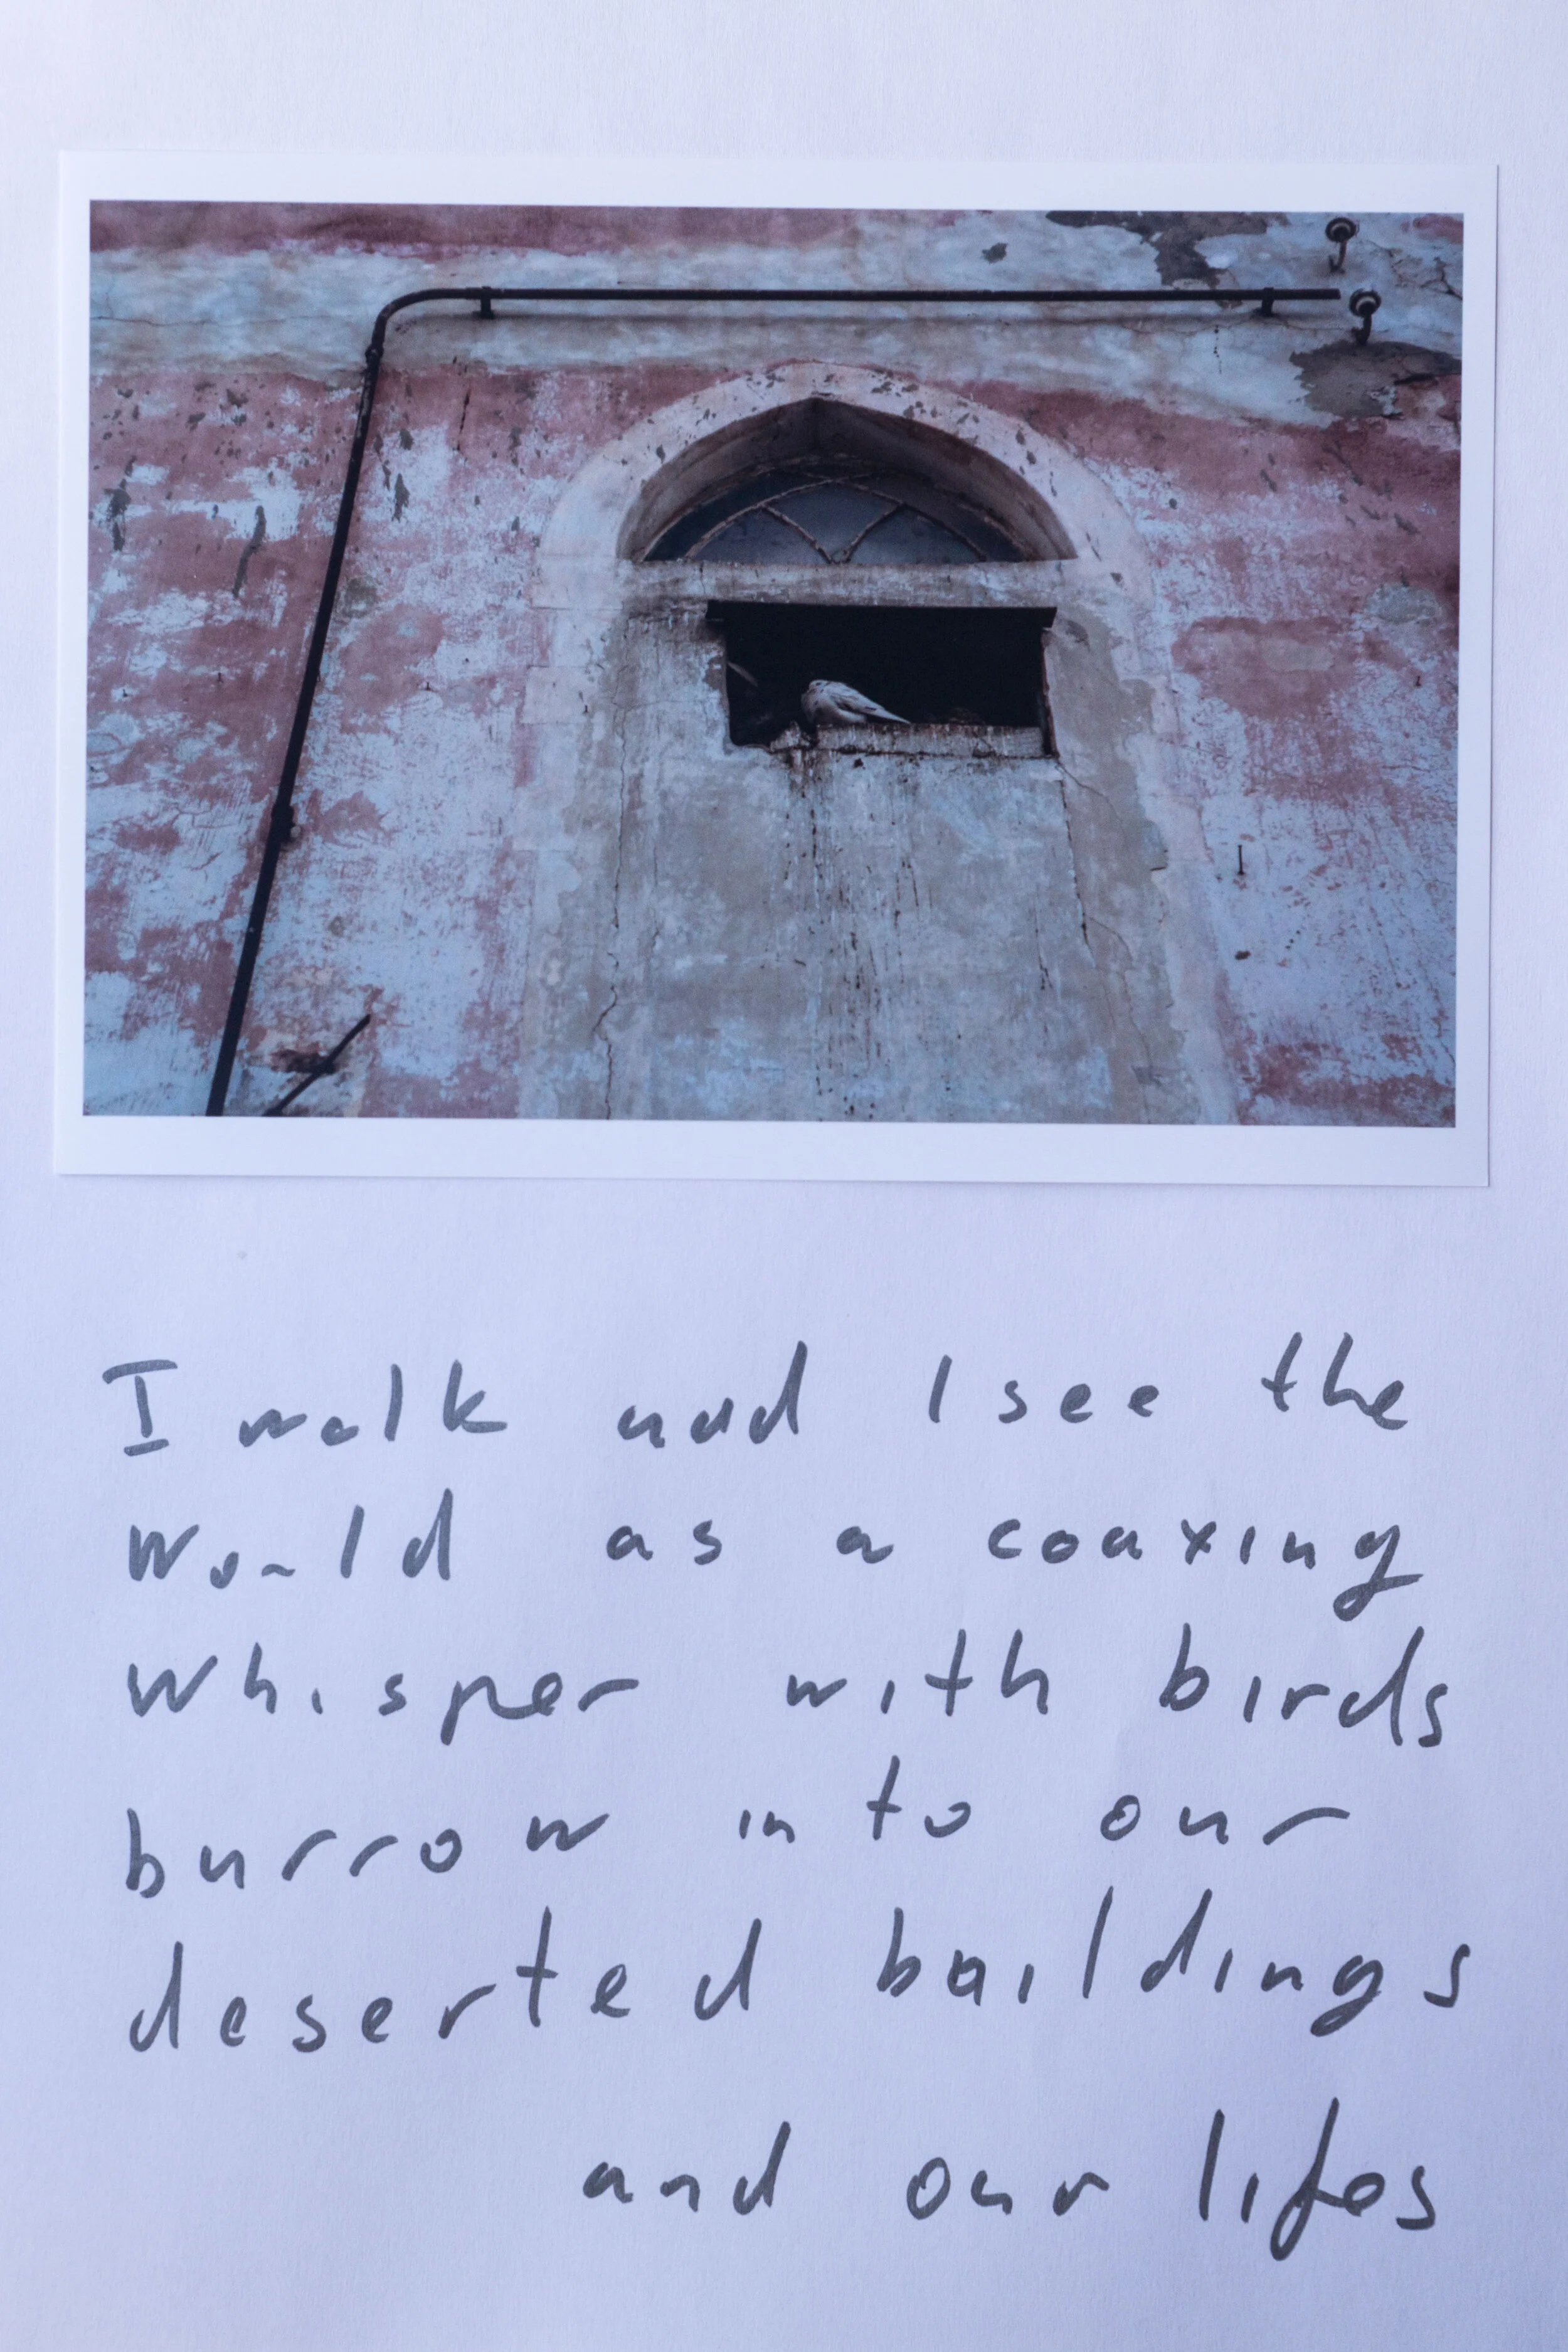 I walk and I see the
world as a coaxing
whisper with birds
burrow into our
deserted buildings
and our lifes